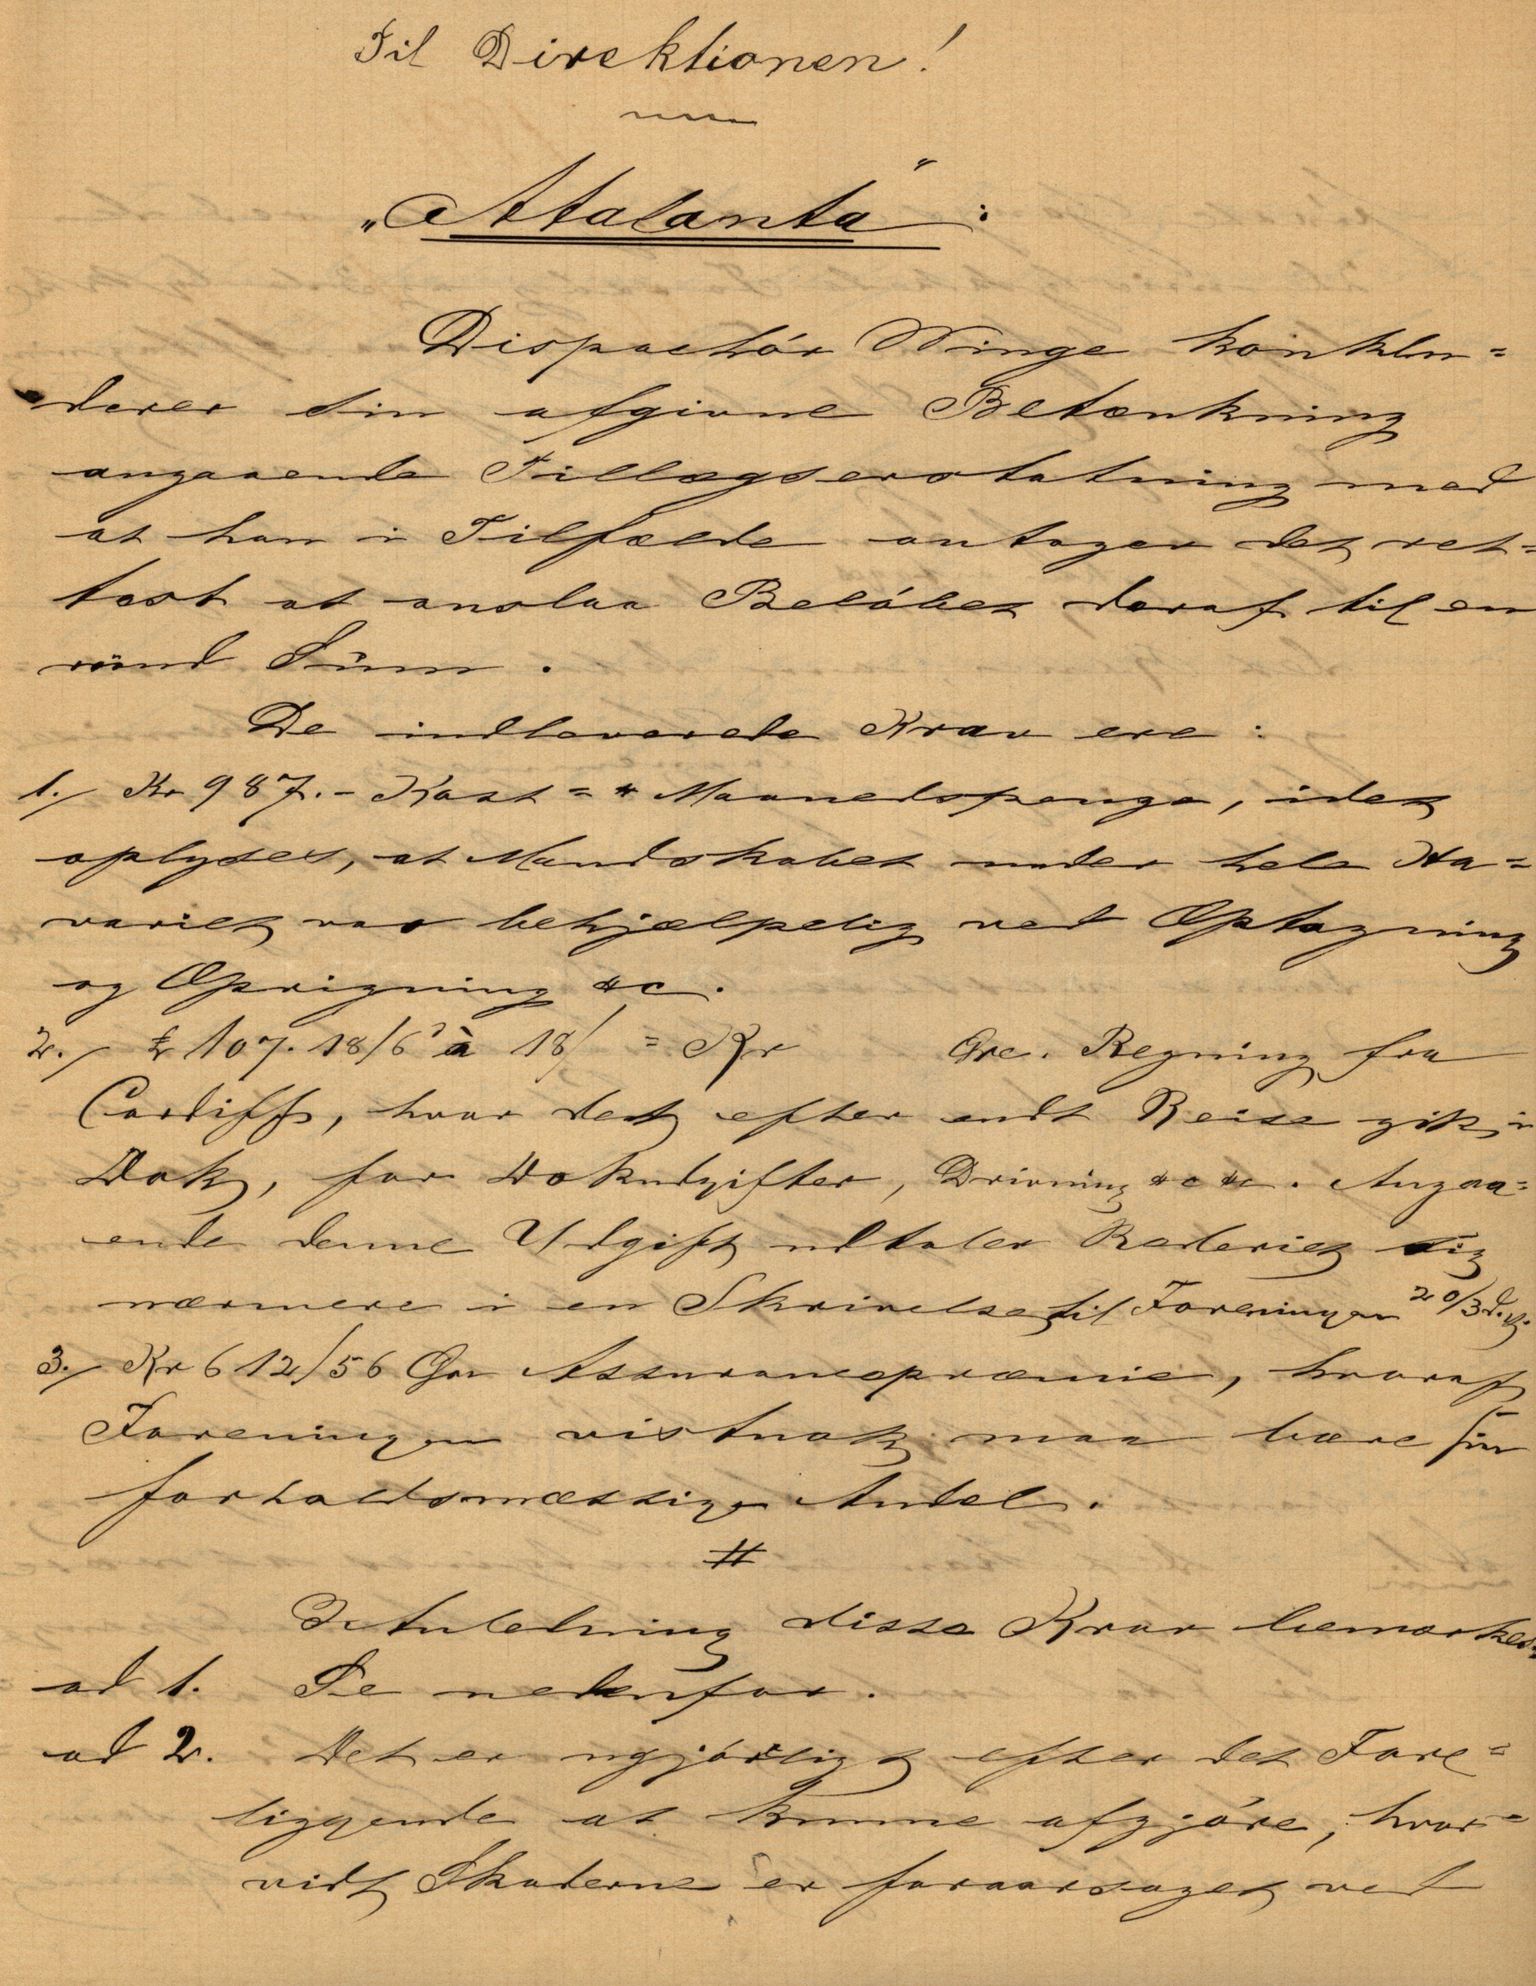 Til Direktionen!
„Atalanta":
Dispachör Winge konklu=
derer sin afgivne Betænkning
angaaende Tillægserstatning med
at han i Tilfælde antager det ret=
test at anslaa Beløbet deraf til en
rund Sum.
De indleverede Krav ere:
1./ Kr 987.- Kost= & Maanedspenge, idet
oplyses, at Mandskabet under hele Ha=
variet var behjælpelig ved Optagning
og Oprigning &c.
2./ £ 107.18/6 à 18/ = Kr Øre. Regning fra
Cardiff, hvor det efter endt Reise gik i
Dok, for Dokudgifter, Drivning &c &c. Angaa=
ende denne Udgift udtaler Rederiet sig
nærmere i en Skrivelse til Foreningen 20/3 d.A.
3./ Kr 612/56 Øre Assurancepræmie, hvoraf
Foreningen vistnok maa bære sin
forholdsmæssige Andel.
#
I Anledning disse Krav bemærkes:
ad 1. Se nedenfor.
ad 2. Det er ugjørligt efter det Fore=
liggende at kunne afgjøre, hvor=
vidt Skaderne er foraarsaget ved